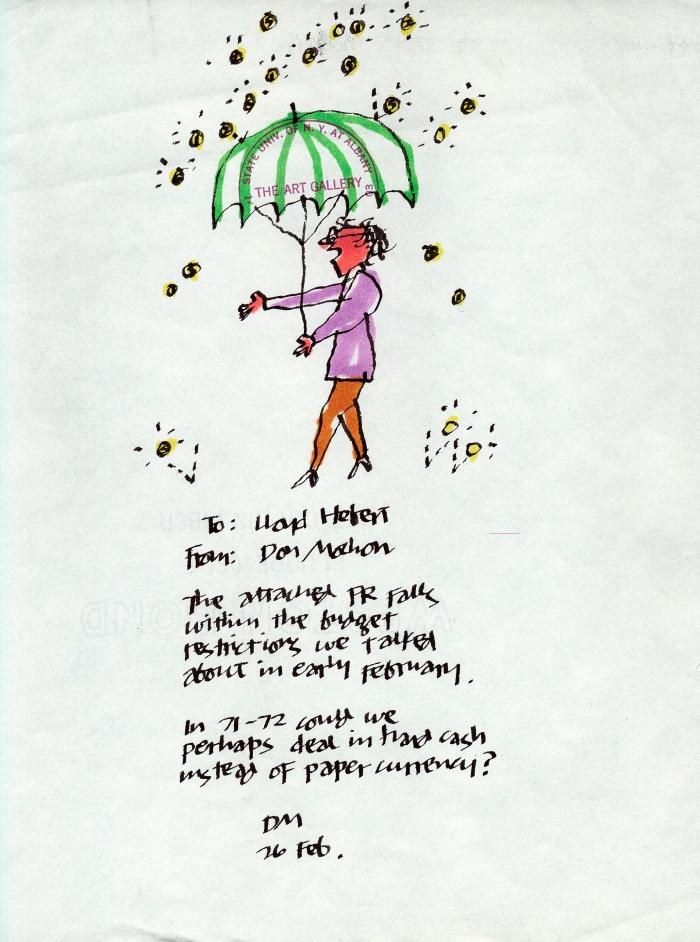 STATE UNIV. OF N. Y. AT ALBANY
THE ART GALLERY
To: Lloyd Hebert
From: Don Mochon
The attached PR falls
within the budget
restrictions we talked
about in early February.
In 71-72 could we
perhaps deal in hard cash
instead of paper currency?
DM
26 Feb.